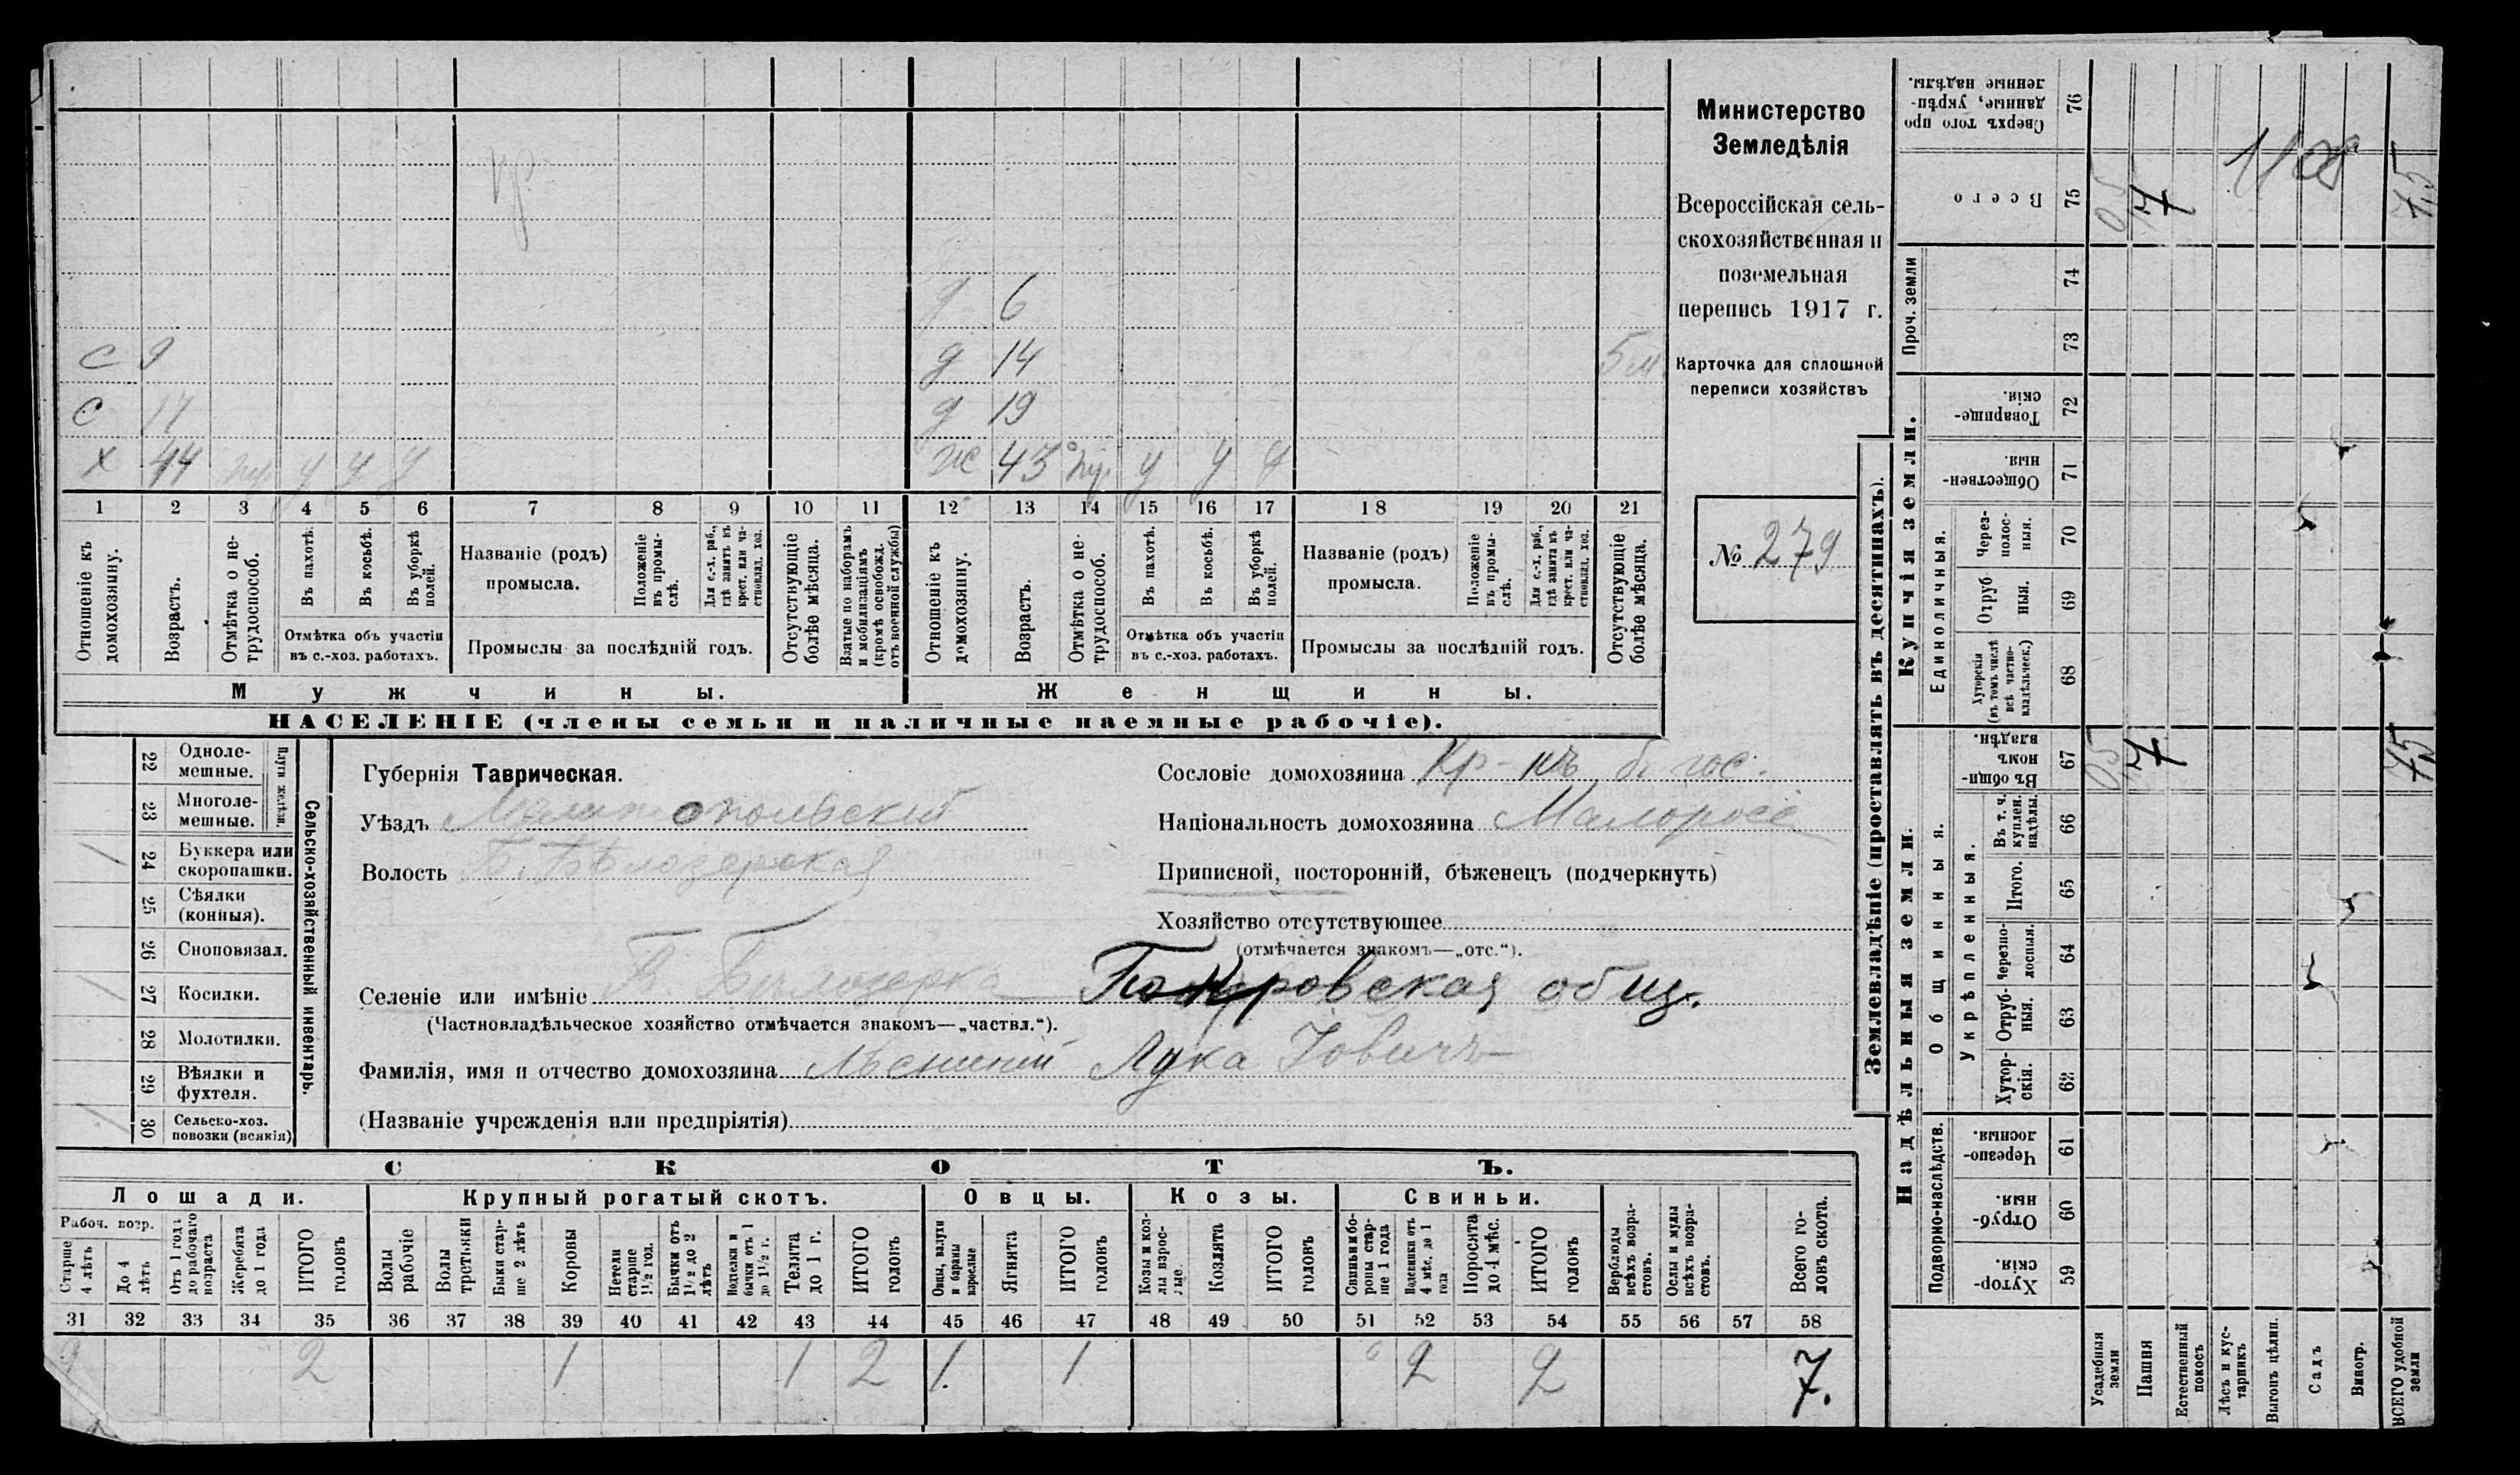 Министерство
Земледѣлія
Всероссійская сель-
скохозяйственная и
поземельная
перепись 1917 г.
Карточка для сплошной
переписи хозяйствъ
№ 279
д 6
с 9 д 14 5 м
с 17 д 19
х 44 у у у ж 43 у у у
1 2 3 4 5 6 7 8 9 10 11 12 13 14 15 16 17 18 19 20 21
Отношеніе къ домохозяину.
Возрастъ.
Отмѣтка о не-трудоспособ.
Въ пахотѣ.
Въ косьбѣ.
Въ уборкѣ полей.
Отмѣтка объ участіи
въ с.-хоз. работахъ.
Названіе (родъ)
промысла.
Положеніе въ промы-слѣ.
Для с.-х. раб., гдѣ занятъ въ крест. или ча-стновлад. хоз.
Промыслы за послѣдній годъ.
Отсутствующіе болѣе мѣсяца.
Взятые по наборамъ и мобилизаціямъ (кромѣ освобожд. отъ военной службы)
Отношеніе къ домохозяину.
Возрастъ.
Отмѣтка о не-трудоспособ.
Въ пахотѣ.
Въ косьбѣ.
Въ уборкѣ полей.
Отмѣтка объ участіи
въ с.-хоз. работахъ.
Названіе (родъ)
промысла.
Положеніе въ промы-слѣ.
Для с.-х. раб., гдѣ занята въ крест. или ча-стновлад. хоз.
Промыслы за послѣдній годъ.
Отсутствующіе болѣе мѣсяца.
Мужчины. Женщины.
НАСЕЛЕНІЕ (члены семьи и наличные наемные рабочіе).
Сельско-хозяйственный инвентарь.
Плуги желѣзн.
22 Одноле-мешные.
23 Многоле-мешные.
24 Буккера или скоропашки.
25 Сѣялки (конныя).
26 Сноповязал.
27 Косилки.
28 Молотилки.
29 Вѣялки и фухтеля.
30 Сельско-хоз. повозки (всякія)
Губернія Таврическая.
Уѣздъ Мелитопольскій
Волость Б. Бѣлозерская
Сословіе домохозяина Кр-нъ б. гос.
Національность домохозяина Малоросс
Приписной, посторонній, бѣженецъ (подчеркнуть)
Хозяйство отсутствующее
(отмѣчается знакомъ—„отс.“).
Селеніе или имѣніе Б. Бѣлозерка Покровская общ.
(Частновладѣльческое хозяйство отмѣчается знакомъ—„частвл.“).
Фамилія, имя и отчество домохозяина Лука Іовичъ
(Названіе учрежденія или предпріятія)
СКОТЪ.
Лошади. Крупный рогатый скотъ. Овцы. Козы. Свиньи.
Рабоч. возр.
Старше 4 лѣтъ
До 4 лѣтъ
Отъ 1 года до рабочаго возраста
Жеребята до 1 года
ИТОГО головъ
Волы рабочіе
Волы третьяки
Быки стар-ше 2 лѣтъ
Коровы
Нетели старше 1½ год.
Бычки отъ 1½ до 2 лѣтъ
бычки отъ 1 до 1½ г.
Телята до 1 г.
ИТОГО головъ
Овцы, валухи и бараны взрослые
Ягнята
ИТОГО головъ
Козы и коз-лы взрос-лые
Козлята
ИТОГО головъ
Свиньи и бо-ровы стар-ше 1 года
Подсвинки отъ 4 мѣс. до 1 года
Поросята до 4 мѣс.
ИТОГО головъ
Верблюды всѣхъ возра-стовъ.
Ослы и мулы всѣхъ возра-стовъ.
Всего го-ловъ скота.
31 32 33 34 35 36 37 38 39 40 41 42 43 44 45 46 47 48 49 50 51 52 53 54 55 56 57 58
2 2 1 1 2 1 1 2 2 7.
Землевладѣніе (проставлять въ десятинахъ).
Купчія земли.
Надѣльныя земли.
Сверхъ того про данные, укрѣп-ленные надѣлы. 76
Всего 75 0,5 7 7,5
Проч. земли
74
73
Товарище-скія. 72
Обществен-ныя. 71
Единоличныя.
Через-полос-ныя. 70
Отруб-ныя. 69
Хуторскія (въ томъ числѣ всѣ частно-владѣльческ.) 68
Общинныя.
Въ общин-номъ владѣн. 67 0,5 7 7,5
Укрѣпленныя.
Въ т. ч. куплен. надѣлы. 66
Итого. 65
Черезпо-лосныя. 64
Отруб-ныя. 63
Хутор-скія. 62
Подворно-наслѣдств.
Черезпо-лосныя. 61
Отруб-ныя. 60
Хутор-скія. 59
Усадебныя земли
Пашня
Естественный покосъ
Лѣсъ и кус-тарникъ
Выгонъ цѣлин.
Садъ
Виногр.
ВСЕГО удобной земли